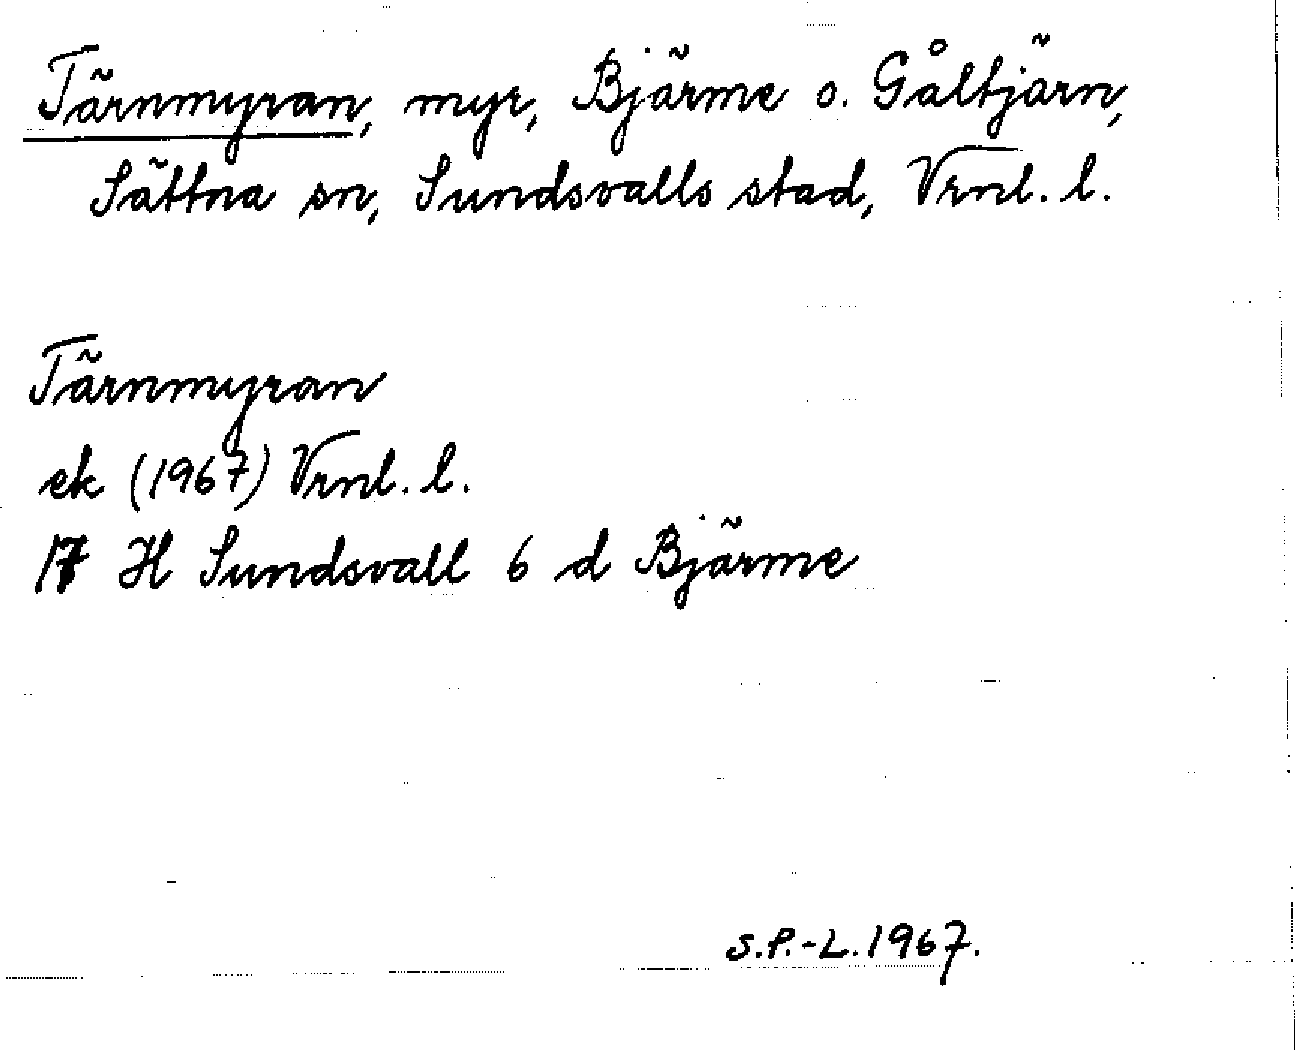 Tärnmyran, myr, Bjärme o. Gåltjärn,
Sättna sn, Sundsvalls stad, Vrnl. l.
Tärnmyran
ek (1967) Vrnl. l.
17 H Sundsvall 6 d Bjärme
S.P.-L. 1967.